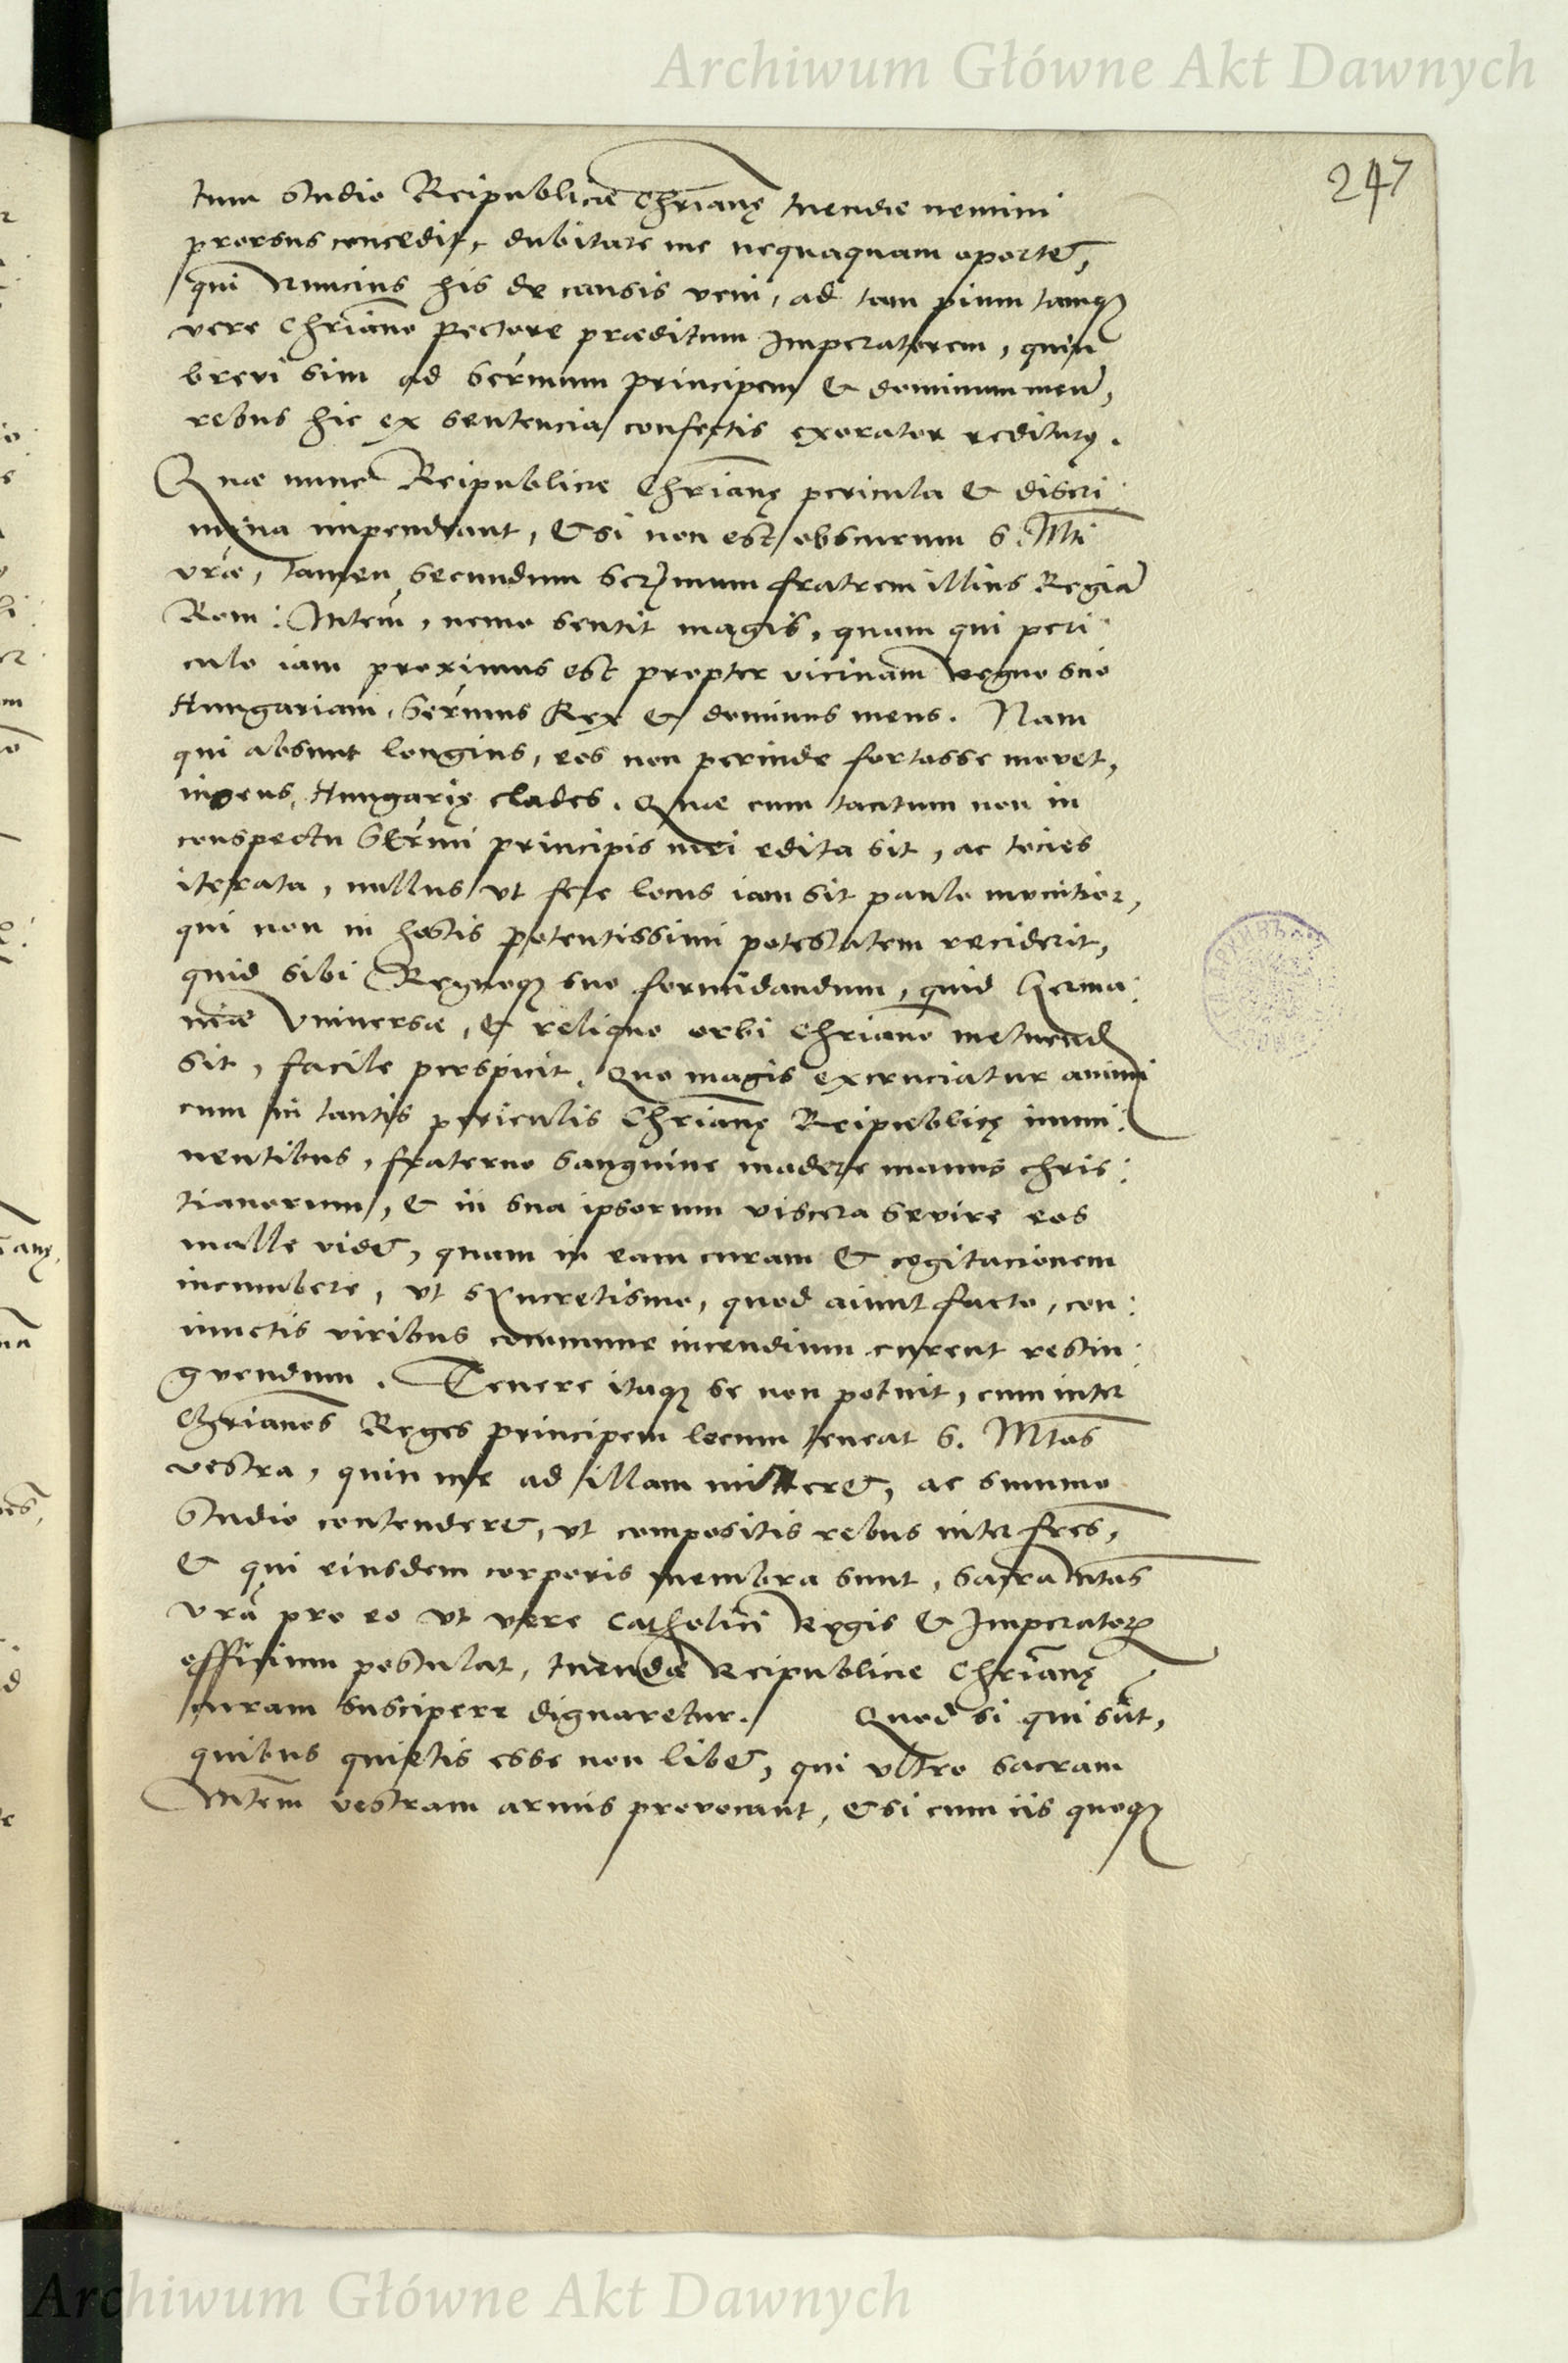 Archiwum Główne Akt Dawnych
247
tum studio Reipublicæ Chr̄ianę tuendæ nemini
prorsus concedit, dubitare me nequaquam oportet,
qui Nuncius his de causis veni, ad tam pium tamq3
vere Chr̄iano pectore præditum Imperatorem, quin
brevi sim ad Ser̄mum principem & dominum meū,
rebus hic ex sentencia confectis exorator rediturus.
Quæ nunc Reipublicæ Chr̄ianę pericula & discri:
mina impendeant, Etsi non est obscurum S. Mti
vr̄æ, tamen secundum Ser̄mum fratrem illius Regiā
Rom: Mtem̄, nemo sentit magis, quam qui peri:
culo iam proximus est propter vicinam regno suo
Hungariam, Ser̄mus Rex & dominus meus. Nam
qui absunt longius, eos non perinde fortasse movet,
ingens Hungarię clades. Quæ cum tantum non in
conspectu Ser̄mi principis mei edita sit, ac tocies
iterata, nullus ut fere locus iam sit paulo munitior,
qui non in hostis potentissimi potestatem reciderit,
quid sibi Regnoq3 suo formidandum, quid Germa:
niæ Universæ, & reliquo orbi Chr̄iano metuend
sit, facile perspicit. Quo magis excruciatur animi
cum in tantis periculis Chr̄ianę Reipublicę immi:
nentibus, fraterno sanguine madere manus chris:
tianorum, & in sua ipsorum viscera sevire eos
malle videt, quam in eam curam & cogitacionem
incumbere, ut syncretismo, quod aiunt facto, con:
iunctis viribus commune incendium curent restin:
guendum. Tenere itaq3 se non potuit, cum inter
Chr̄ianos Reges principem locum teneat S. Mtas
vestra, quin me ad illam mitteret, ac summo
studio contenderet, ut compositis rebus inter fr̄es,
& qui eiusdem corporis membra sunt, Sacra Mtas
vr̄a pro eo ut vere Catholici Regis & Imperatoris
officium postulat, tuendæ Reipublicæ Chr̄ianę
curam suscipere dignaretur. Quod si qui sūt,
quibus quietis esse non libet, qui ultro sacram
Mtem̄ vestram armis provocant, Etsi cum iis quoq3
Archiwum Główne Akt Dawnych